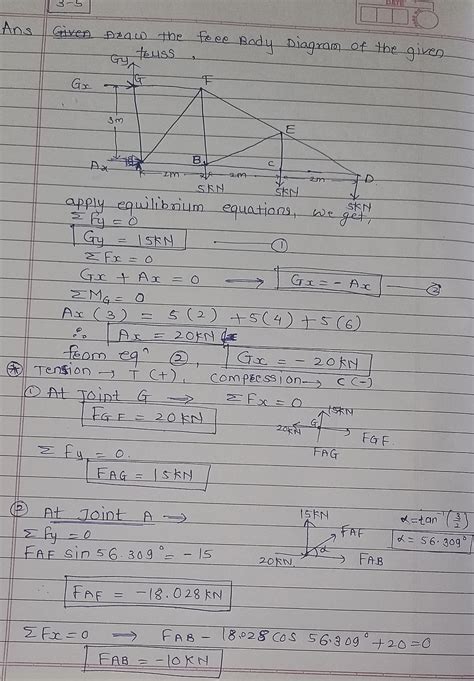 3-5
DATE
Ans Given Draw the free Body Diagram of the given
truss.
Gy
G
F
Gx
3m
E
Ax
A
B
C
D
2m
2m
2m
5KN
5KN
5KN
apply equilibrium equations, we get,
ΣFy = 0
Gy = 15KN ①
ΣFx = 0
Gx + Ax = 0 → Gx = - Ax ②
ΣMG = 0
Ax (3) = 5(2) + 5(4) + 5(6)
∴ Ax = 20KN
from eqn ②, Gx = - 20KN
* Tension → T (+), compression → C (-)
① At Joint G → ΣFx = 0
FGF = 20KN
15KN
20KN
G
FGF
FAG
ΣFy = 0.
FAG = 15KN
② At Joint A →
ΣFy = 0
FAF sin 56.309° = - 15
15KN
FAF
α
20KN
FAB
α = tan⁻¹ (3/2)
α = 56.309°
∴ FAF = - 18.028KN
ΣFx = 0 → FAB - 18.028 cos 56.309° + 20 = 0
FAB = - 10KN